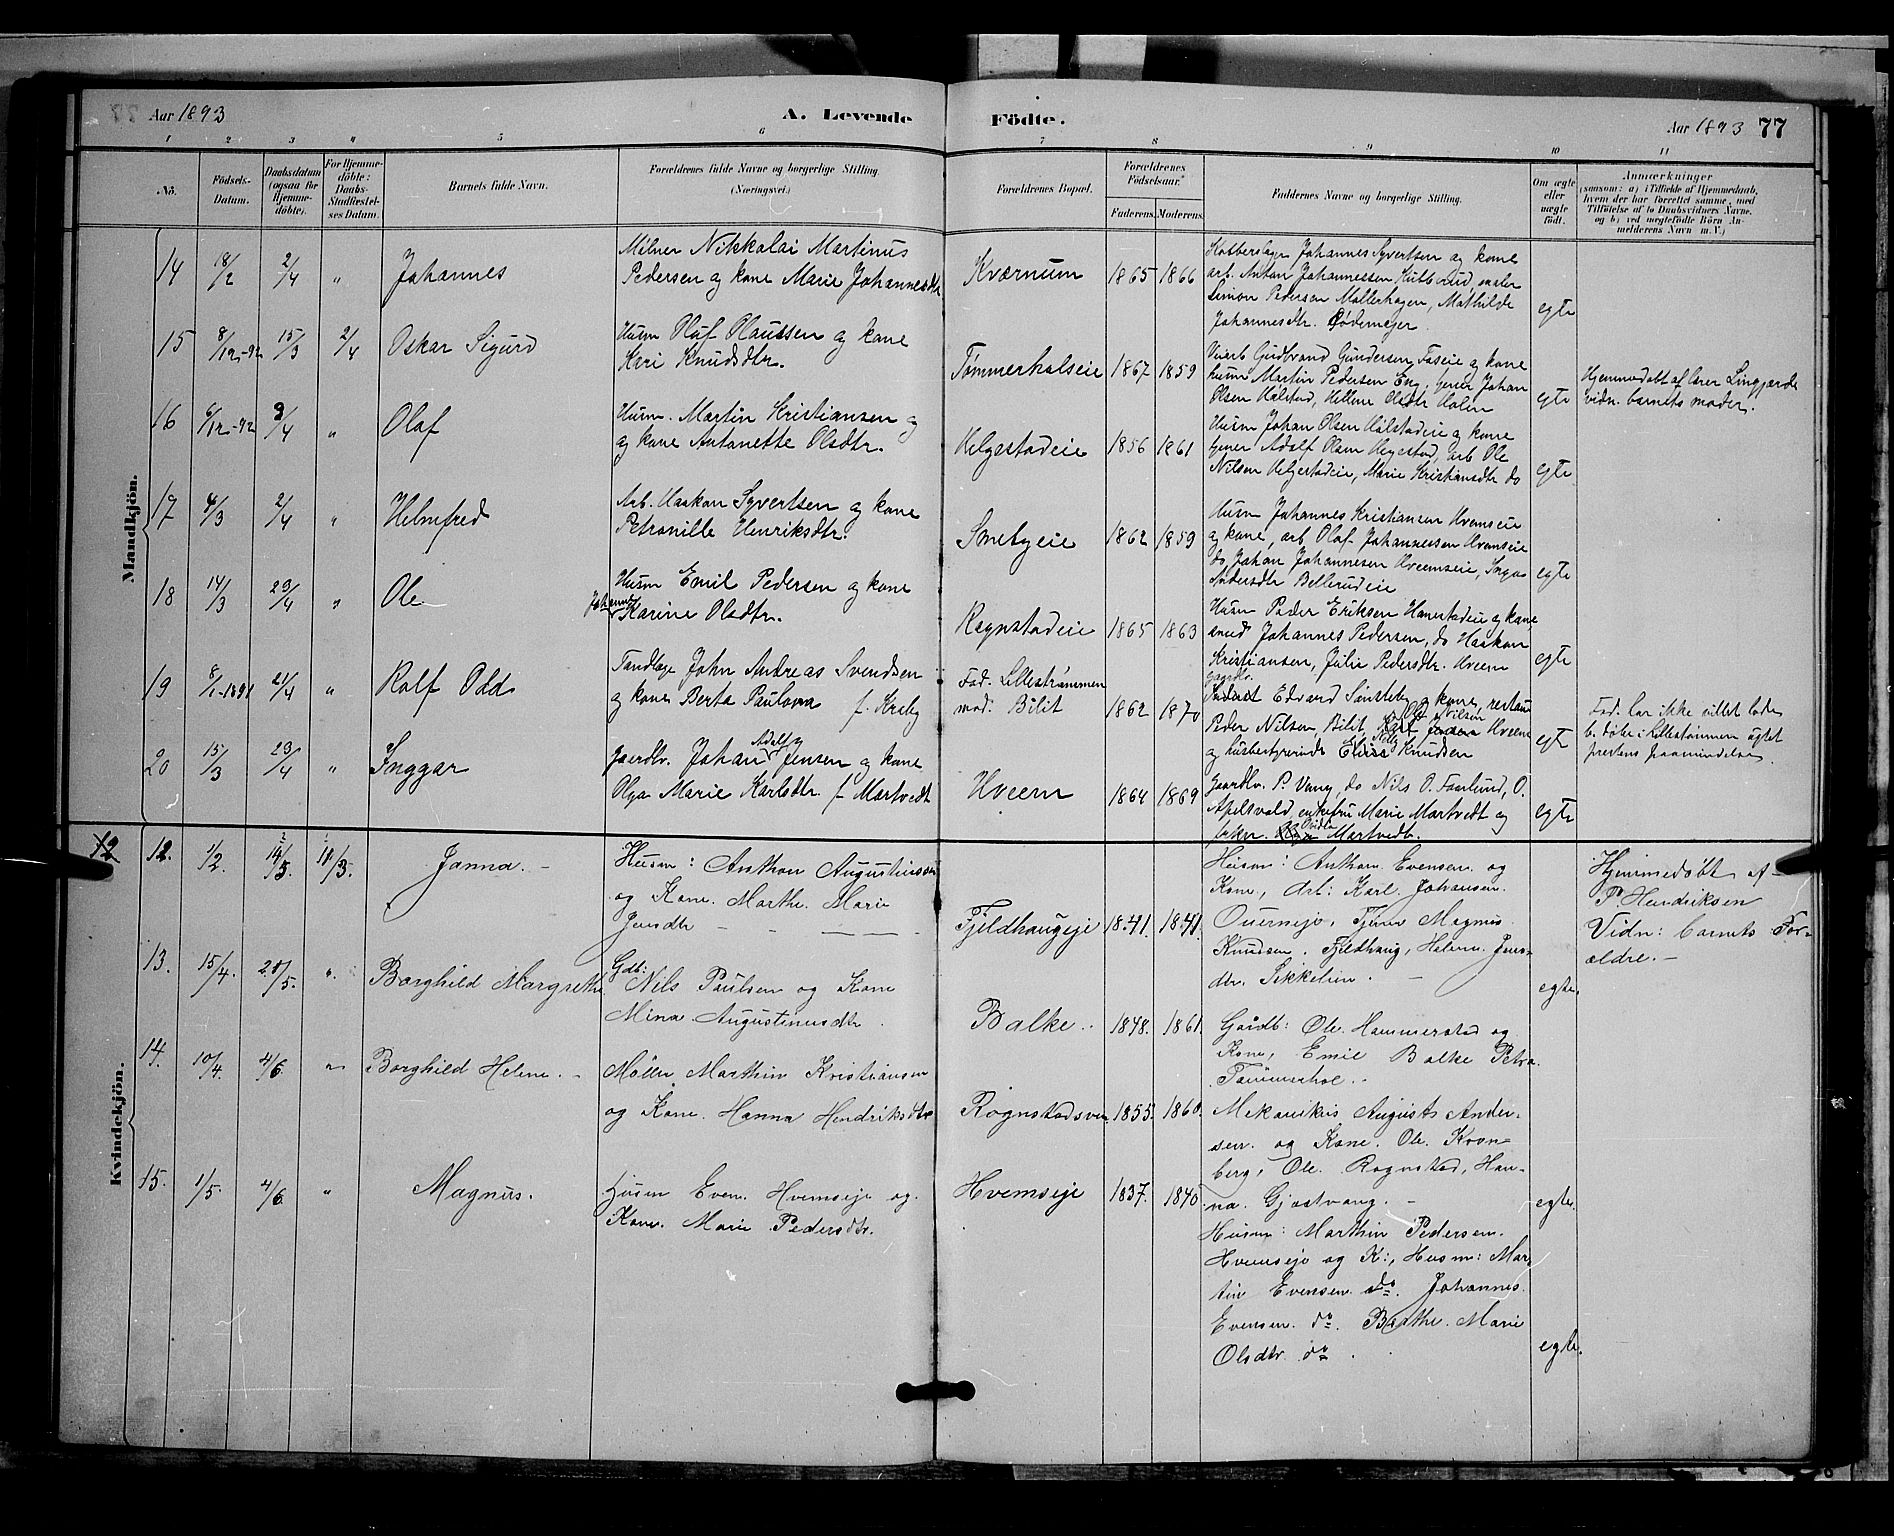 Aar 1893
A. Levende
Födte.
Aar 1893 77
1 2 3 4 5 6 7 8 9 10 11
No.
Födsels-
Datum.
Daabsdatum
(ogsaa for
Hjemme-
döbte).
For Hjemme-
döbte:
Daabs-
Stadfæstel-
ses Datum.
Barnets fulde Navn.
Forældrenes fulde Navne og borgerlige Stilling.
(Næringsvei.)
Forældrenes Bopæl.
Forældrenes
Födselsaar.
Faderens. Moderens.
Faddernes Navne og borgerlige Stilling.
Om ægte
eller
uægte
født.
Anmærkninger
(saasom: a) i Tilfælde af Hjemmedaab,
hvem der har forrettet samme, med
Tilföielse af to Daabsvidners Navne,
og b) ved uægtefödte Börn An-
melderens Navn m. V.)
Mandkjön.
14 18/2 2/4 " Johannes
Mølner Nikkolai Martinus
Pedersen og kone Marie Johannesdtr
Kværnum 1865 1866
Johannes Syvertsen og kone
arb. Anton Johannessen
Simon Pedersen Møllerhagen, Mathilde
Johannesdtr. Rødemejer.
egte
15 8/12-92 15/3 2/4 Oskar Sigurd
Husm Oluf Olaussen og kone
Kari Knudsdtr.
Tømmerholseie 1867 1859
Veiarb Gudbrand Gundersen Faseie og kone
husm Martin Pedersen Eng, Johan
Olsen Halstad, Hellene Olsdtr Holen
egte
Hjemmedøbt af lærer Lingjærde
vidn. barnets moder.
16 6/12-92 9/4 " Olaf
Husm. Martin Kristiansen og
og kone Antonette Olsdtr.
Helgestadeie 1856 1861
Husm Johan Olsen Halstadeie og kone
Adolf Olsen Hegestad, arb Ole
Nilsen Helgestadeie, Marie Kristiansdtr do
egte
17 4/3 2/4 " Helmfred
Arb. Haakon Syvertsen og kone
Petronille Henriksdtr.
Smebyeie 1862 1859
Husm Johannes Kristiansen Hvemseie
og kone, arb Olaf Johannessen Hvemseie
do Johan Johannesen Hveemseie, Inga
Andersdtr Bellerudeie
egte
18 14/3 23/4 " Ole
Husm Emil Pedersen og kone
Johanne
Karine Olsdtr.
Rognstadeie 1865 1863
Husm Peder Eriksen Hanestadeie og kone
smed Johannes Pedersen, do Haakon
Kristiansen, Julie Pedersdtr. Hveem
egte
19 8/1-1891 21/4 " Rolf Odd
Tandlæge John Andreas Svendsen
og kone Berta Paulova f. Kraby
Fad. Lillestrømmen
mod. Bilit 1862 1870
gaardbr.
Edvard Sønsteby og kone, restaur
Peder Nilsen, Bilit, Nilsen Hveem
og husbestyrerinde Knudsen
egte
Fad. har ikke villet lade
b. døbe i Lillestrømmen agtet
prestens paamindelse
20 15/3 23/4 " Inggar
Adolf
Gaardbr. Johan Jensen og kone
Olga Marie Karlsdtr. f. Martvedt
Hveem 1864 1869
Gaardbr. P. Vang, do Nils O. Faarlund, O.
Apelsvold, enkefru Marie Martvedt og
frøken Martvedt.
egte
Kvindekjön.
12 12. 1/2 14/5 11/3. Janna. -
Husm: Anthon Augustinussen
og Kone. Marthe. Marie
Jensdtr
Fjeldhaugeje 1841. 1841.
Husm: Anthon Evensen og
Kone, Arb: Karl Johansen.
Ouerneje, Magnus
Knudsen. Fjeldhaug, Helene Jens-
dtr. Sikkelien.
Hjemmedøbt af
P. Hendriksen
Vidn: barnets For-
ældre. -
13. 15/4. 21/5. " Borghild Margrethe
Gdb:
Nils Paulsen og Kone
Mina Augustinusdtr.
egte.
Balke. 1848. 1861.
Gaardb: Ole. Hammerstad og
Kone, Emil Balke Petra
Tømmerhol.
14. 10/4. 4/6. " Borghild Helene. -
Møller Marthin Kristiansen
og Kone. Hanna Hendriksdtr
Rognstadsven 1855. 1860.
Mekanikus Augusts Ander-
sen. og Kone. Ole. Kron-
berg, Ole. Rognstad, Han-
na. Gjøstvang. -
egte.
15. 1/5. 4/6. " Magnus.
Husm Even. Hvemseje og.
Kone. Marie Pedersdtr.
Hvemseje 1837. 1840.
Husm: Marthin Pedersen.
Hvemseje og K:, Husm: Mar-
tin Evensen do. Johannes.
Evensen. do. Barthe. Marie
Olsdtr do.
egte.